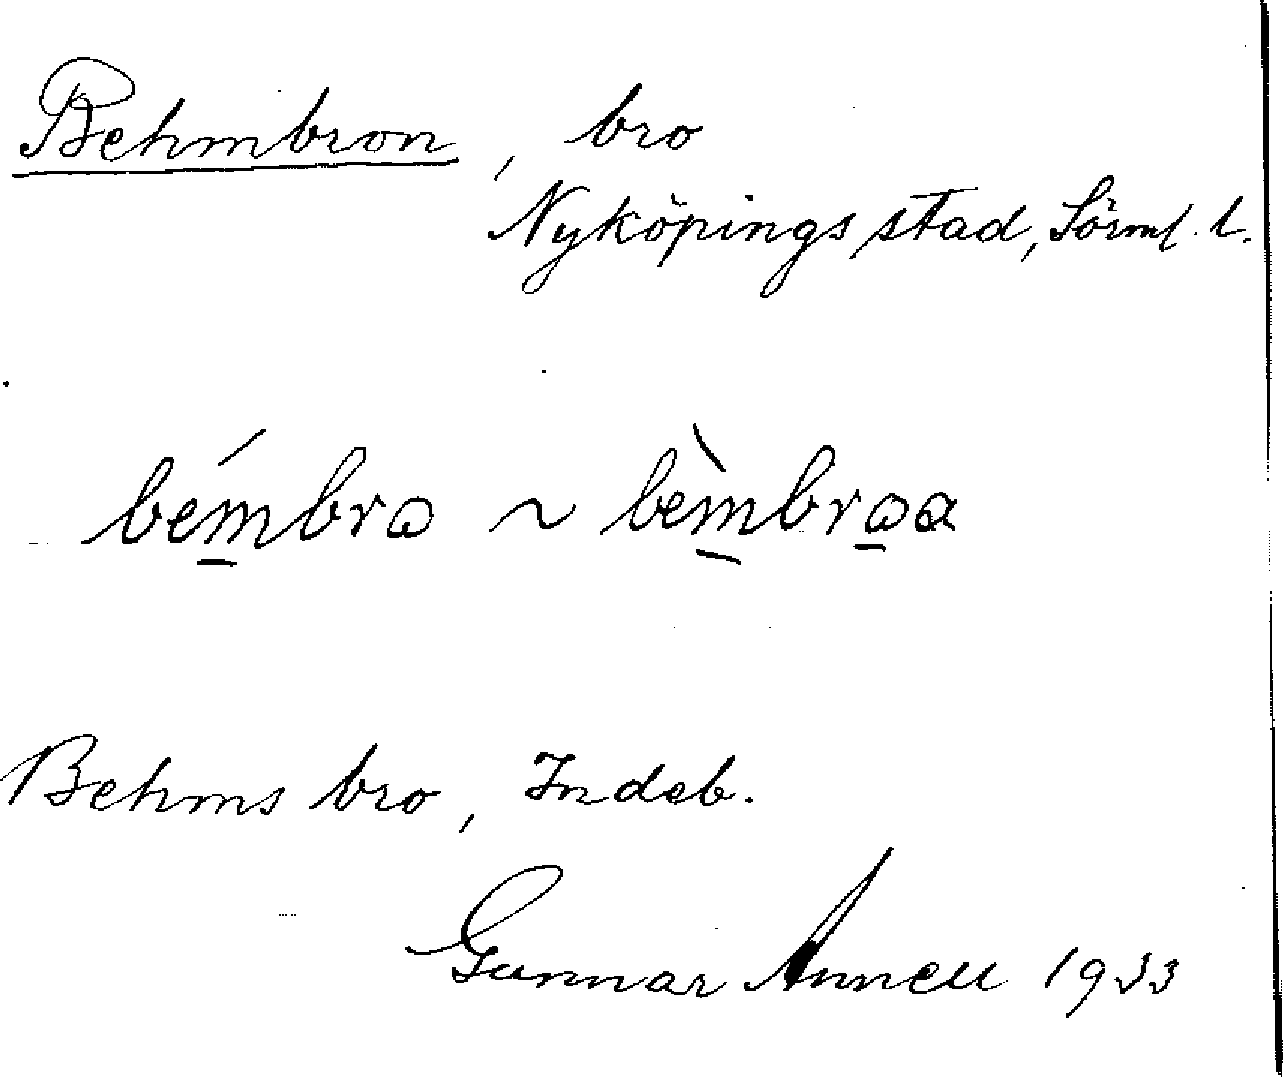 Behmbron, bro
Nyköpings stad, Sörml. l.
bém̲brɷ ~ bèm̲brɷ̲a
Behms bro, Indeb.
Gunnar Annell 1933